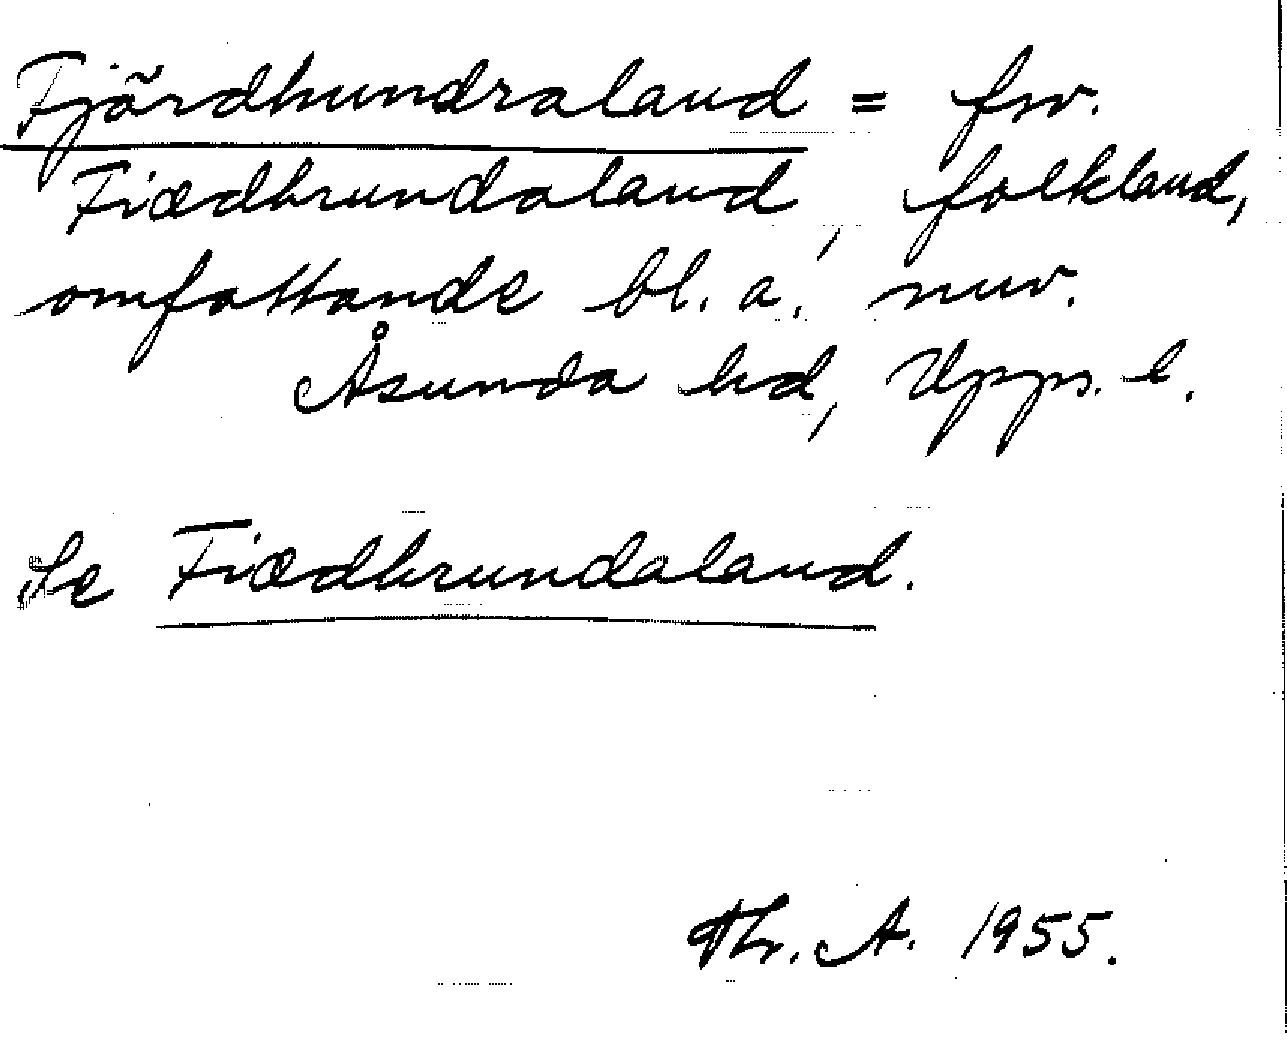 Fjärdhundraland = fsv.
Fiædhrundaland, folkland,
omfattande bl. a. nuv.
Åsunda hd, Upps. l.
Se Fiædhrundaland.
Th. A. 1955.